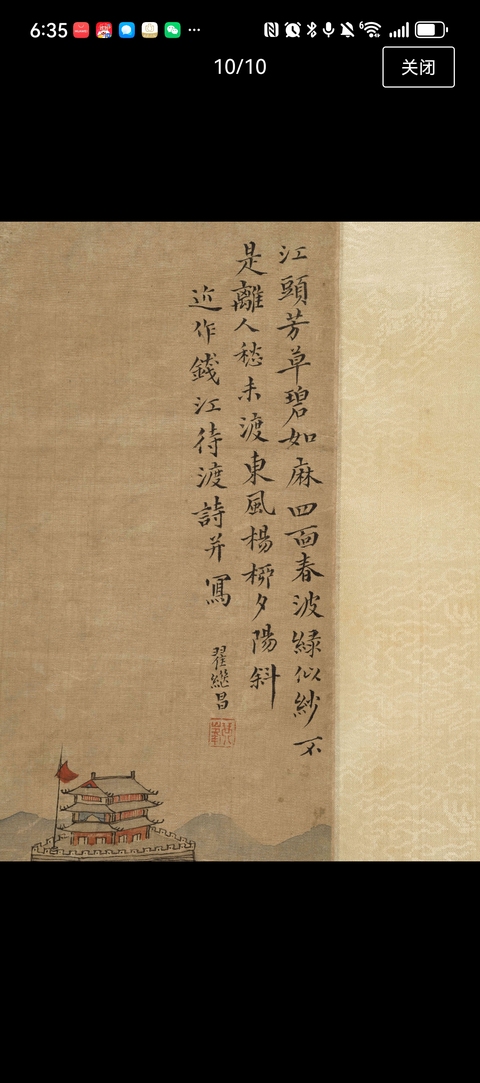 6:35
10/10
关闭
江頭芳草碧如麻四面春波緑似紗不
是離人愁未渡東風楊桺夕陽斜
近作錢江待渡詩并寫
翟繼昌